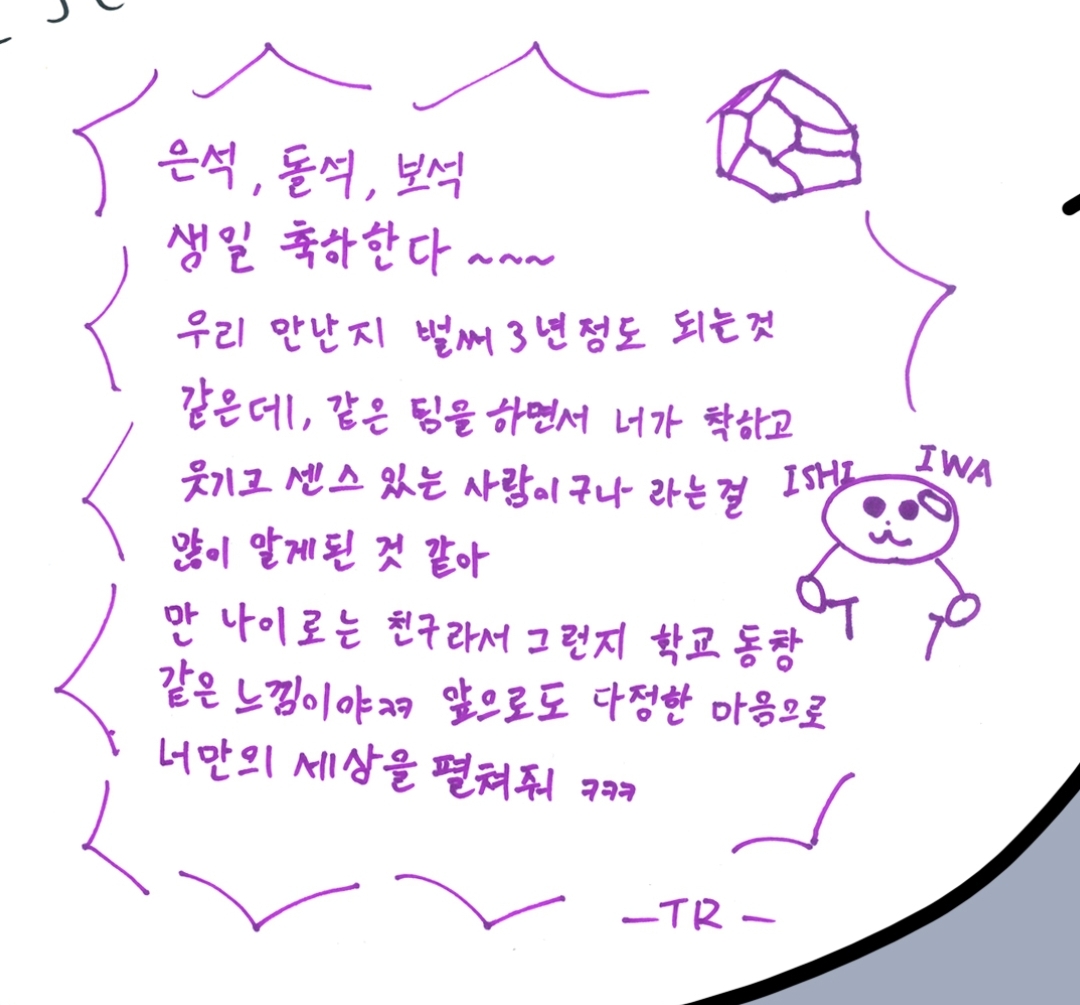 은석, 돌석, 보석
생일 축하한다 ~~~
우리 만난지 벌써 3년정도 되는것
같은데, 같은 팀을 하면서 너가 착하고
웃기고 센스 있는 사람이구나 라는걸
많이 알게된 것 같아
만 나이로는 친구라서 그런지 학교 동창
같은 느낌이야ㅋㅋ 앞으로도 다정한 마음으로
너만의 세상을 펼쳐줘 ㅋㅋㅋ
ISHI IWA
-TR-